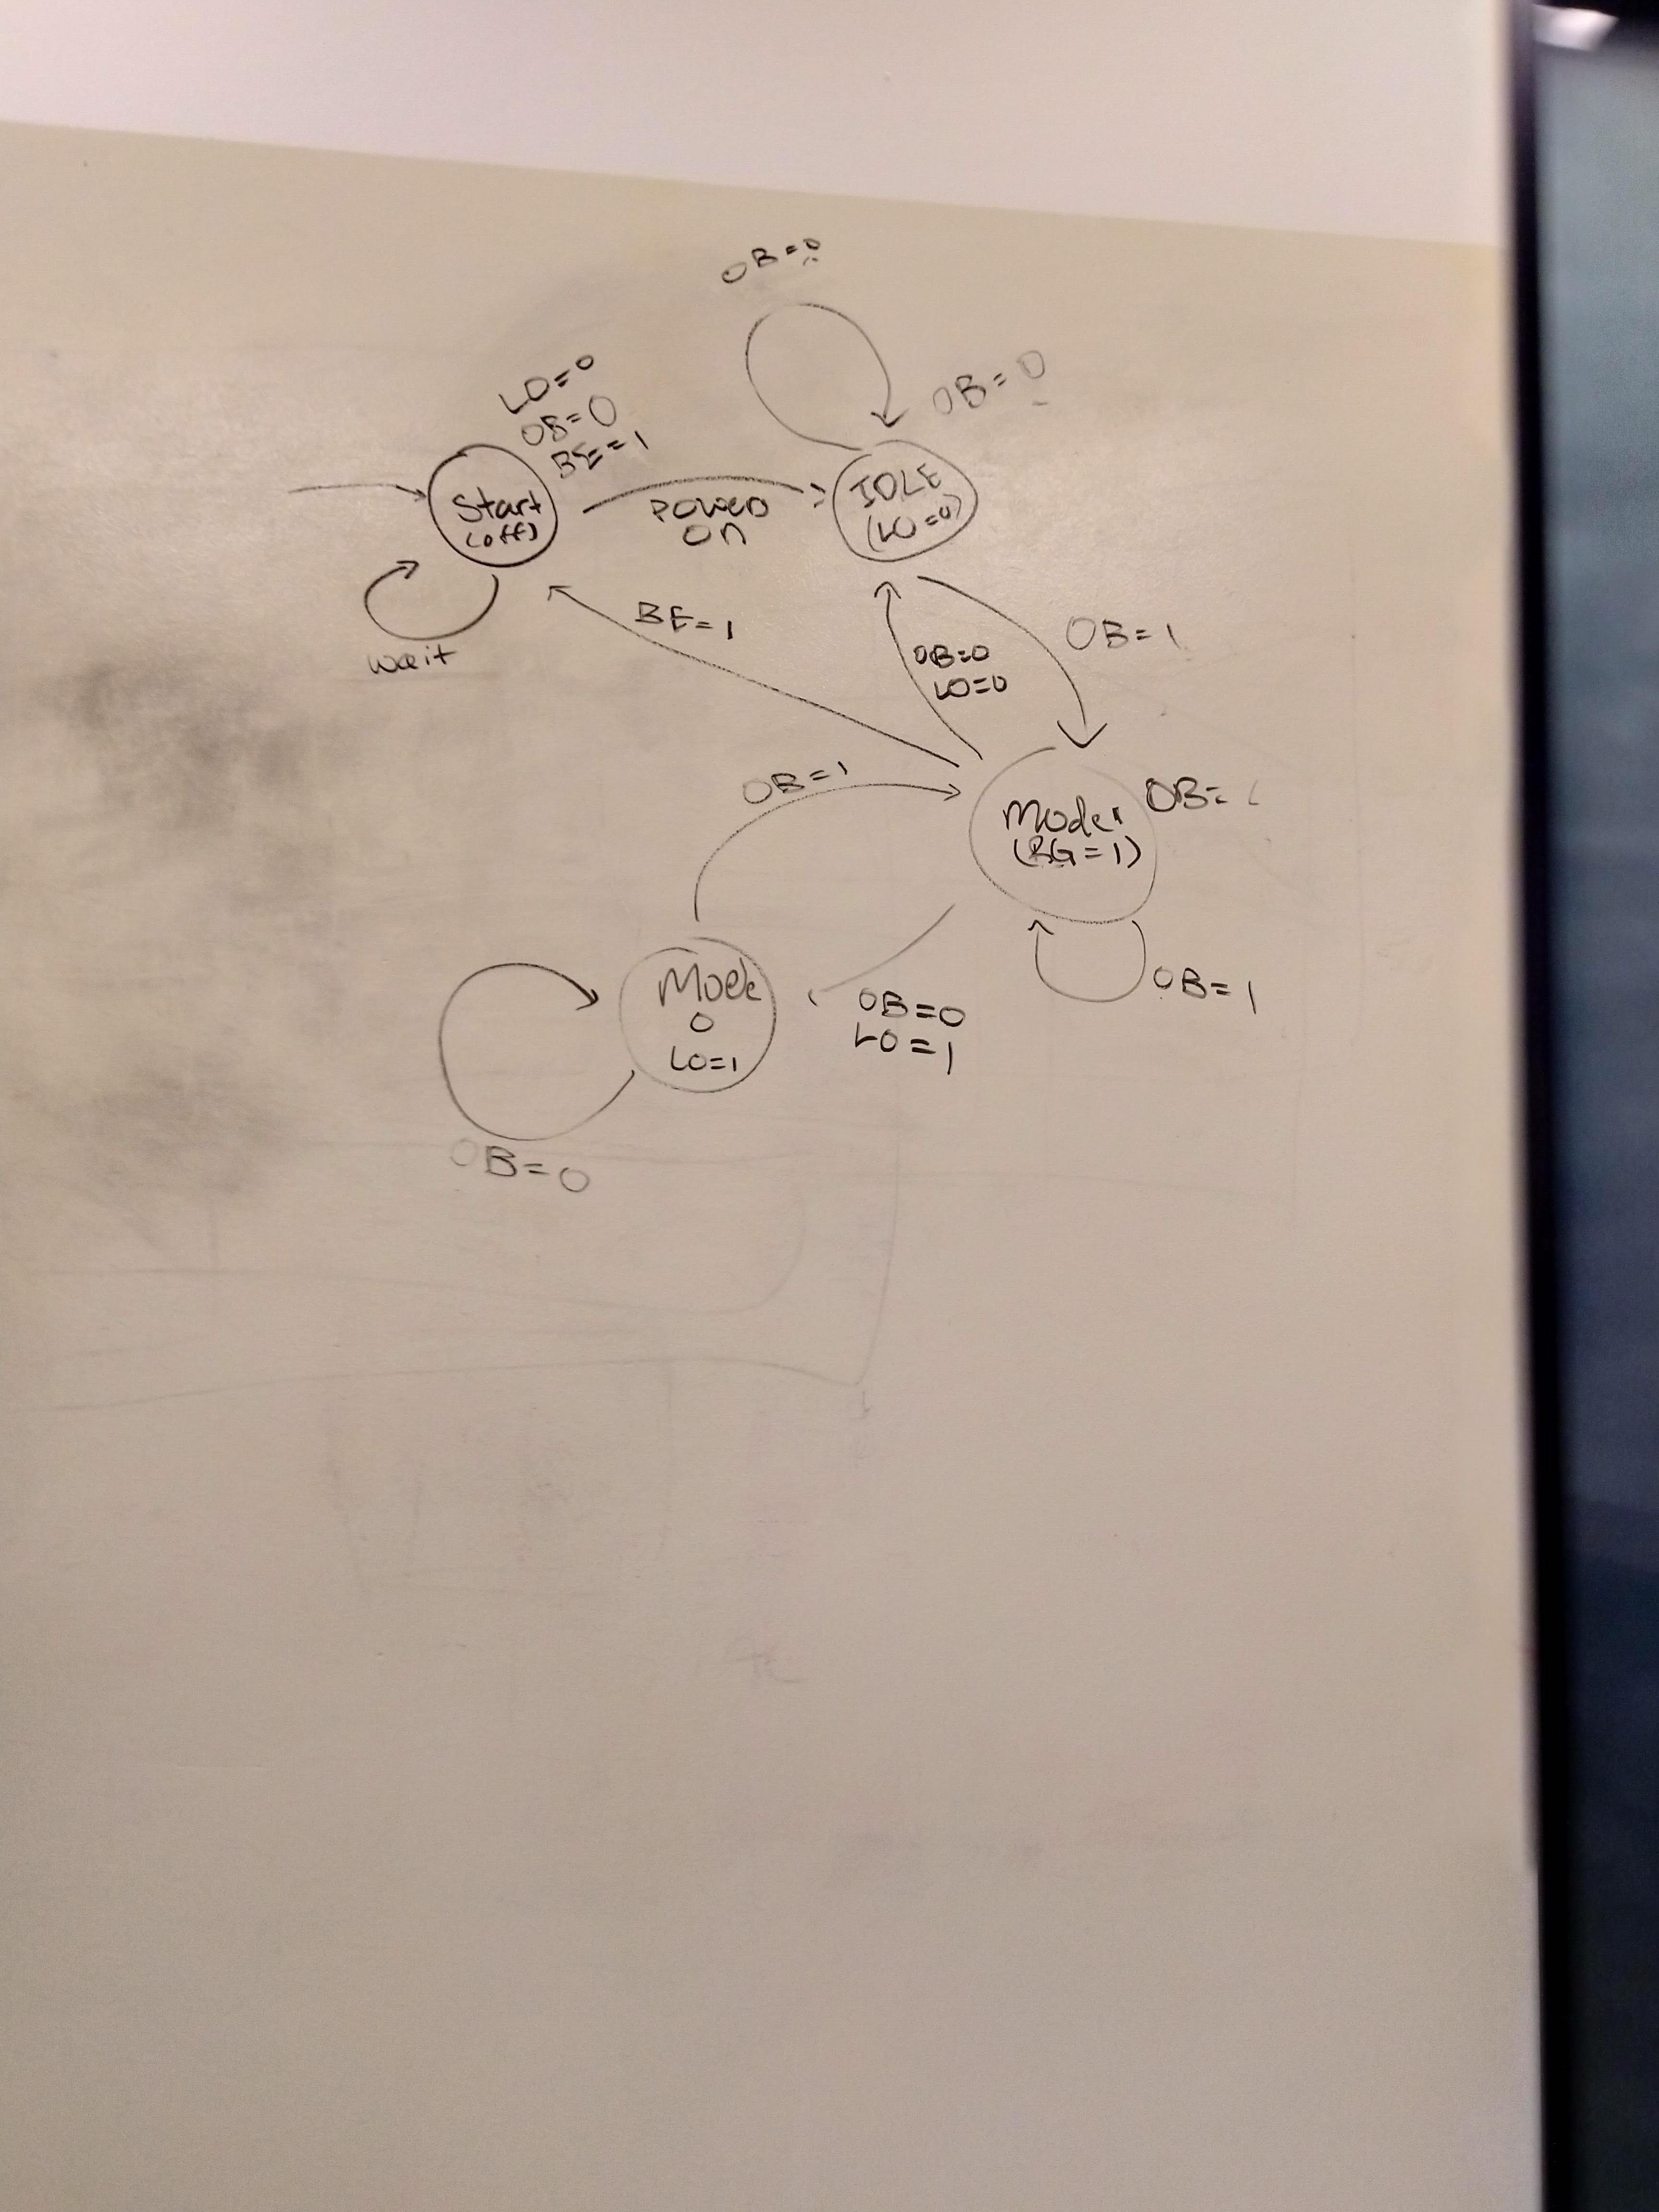 OB=0
LO=0
OB=0
BE=1
OB=0
Start
(off)
POWER
ON
IDLE
(LO=0)
wait
BE=1
OB=0
LO=0
OB=1
OB=1
Mode 1
(BG=1)
OB=
OB=1
Mode
0
LO=1
OB=0
LO=1
OB=0